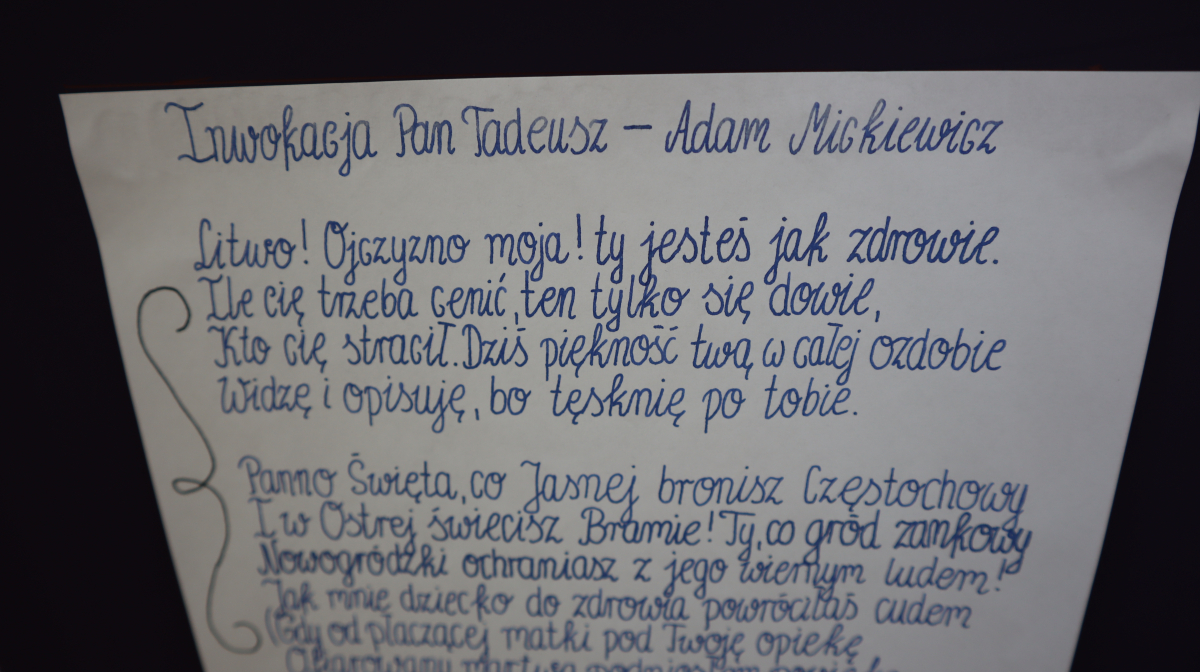 Inwokacja Pan Tadeusz – Adam Mickiewicz
Litwo! Ojczyzno moja! ty jesteś jak zdrowie.
Ile cię trzeba cenić, ten tylko się dowie,
Kto cię stracił. Dziś piękność twą w całej ozdobie
Widzę i opisuję, bo tęsknię po tobie.
Panno Święta, co Jasnej bronisz Częstochowy
I w Ostrej świecisz Bramie! Ty, co gród zamkowy
Nowogródzki ochraniasz z jego wiernym ludem!
Jak mnie dziecko do zdrowia powróciłaś cudem
(Gdy od płaczącej matki pod Twoję opiekę
Ofiarowany martwą podniosłem powiekę